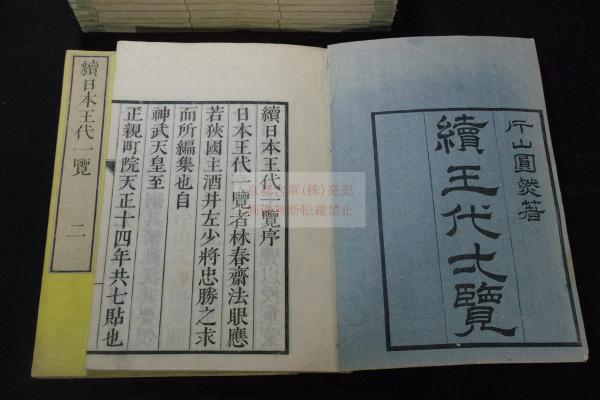 片山圓㷼著
續王代一覽
續日本王代一覽序
日本王代一覽者林春齋法眼應
若狹國主酒井左少將忠勝之求
而所編集也自
神武天皇至
正親町院天正十四年共七貼也
續日本王代一覽 二
京都古章(株)発売
画像無断転載禁止